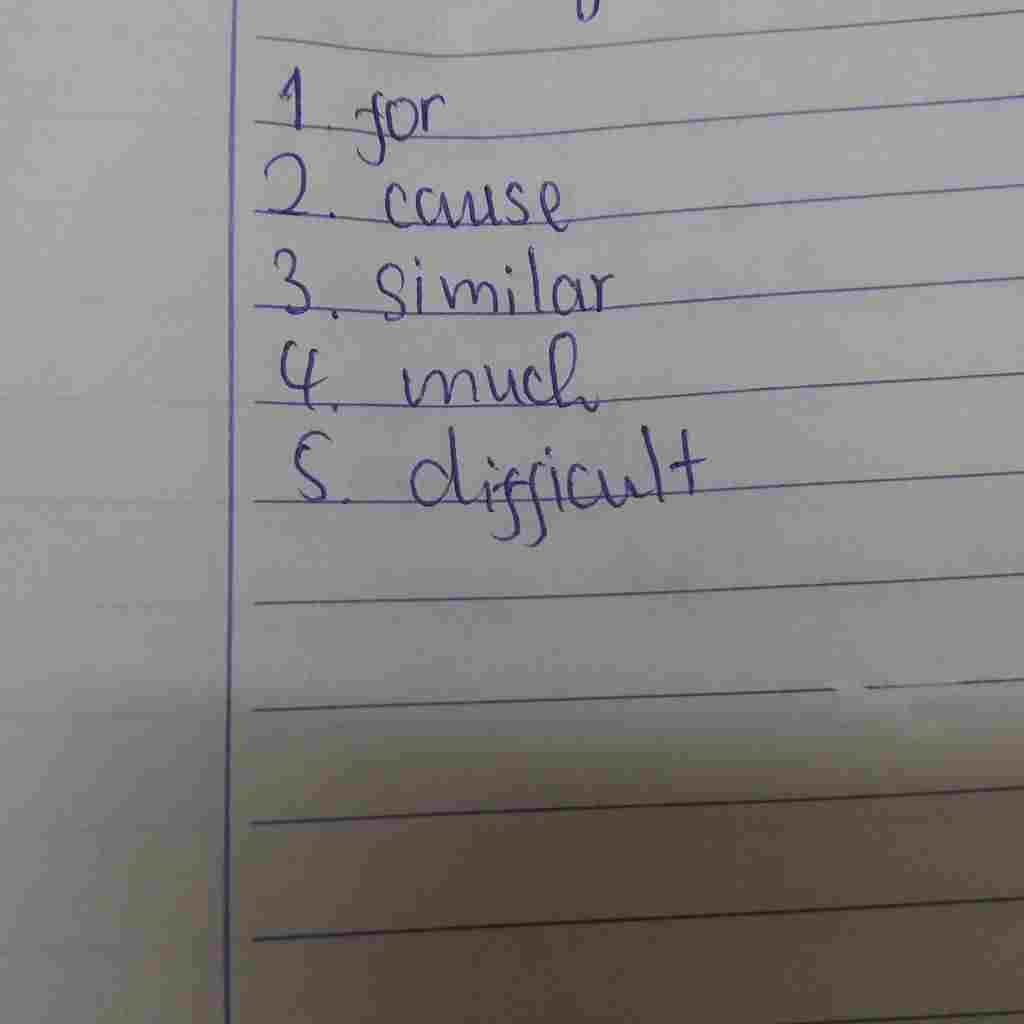 1. for
2. cause
3. similar
4. much
5. difficult